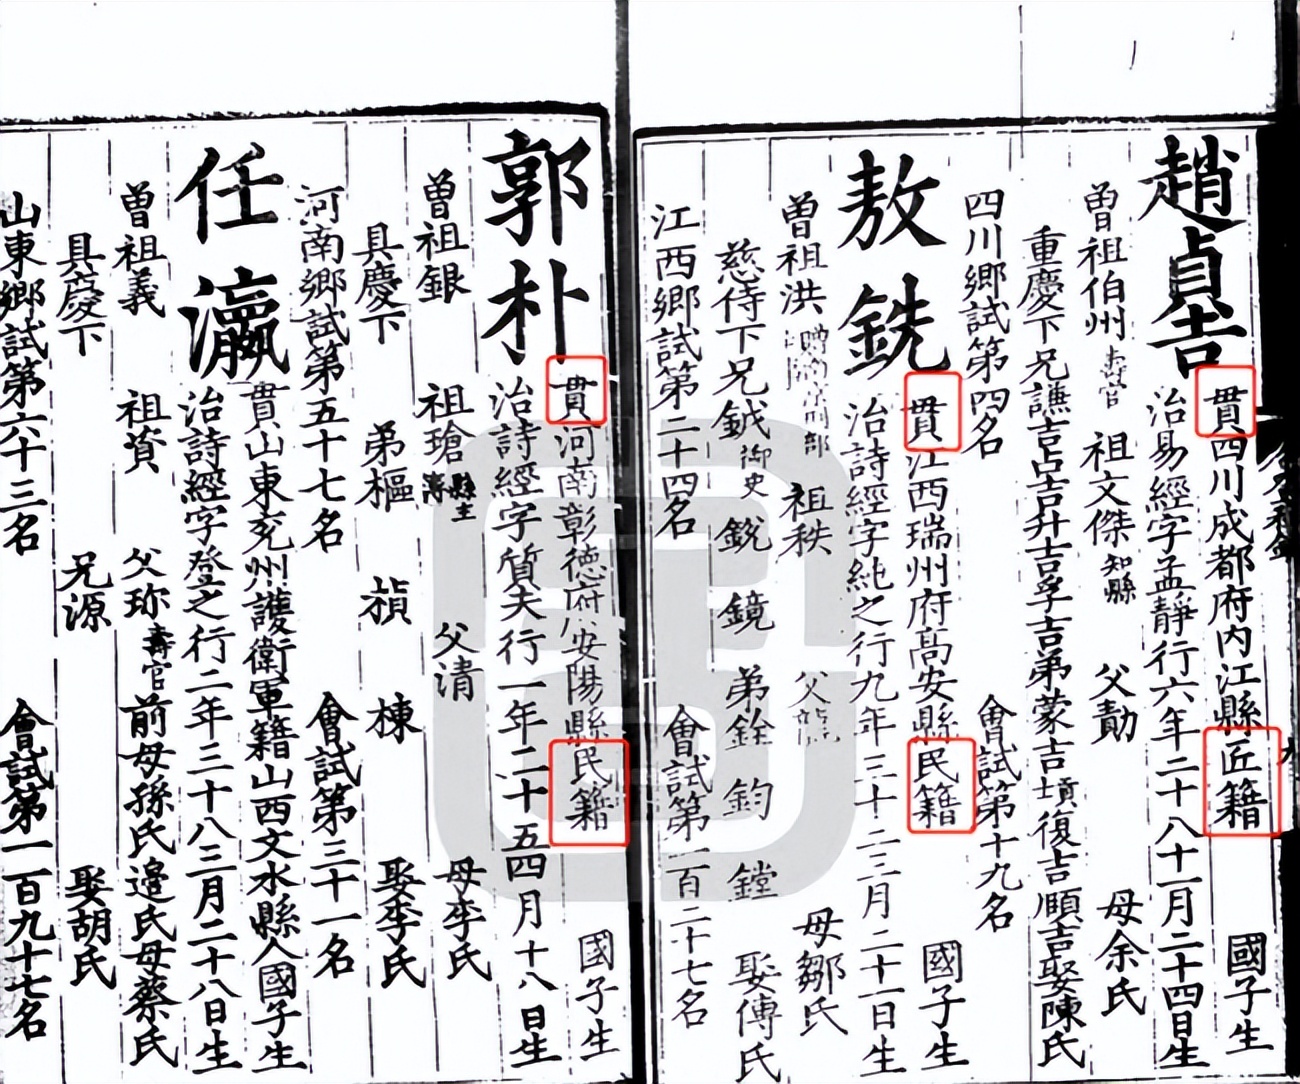 趙貞吉
貫四川成都府內江縣匠籍 國子生
治易經字孟靜行六年二十八十一月二十四日生
曾祖伯州壽官 祖文傑知縣 父勣 母余氏
重慶下兄謙吉占吉升吉孚吉弟蒙吉墳復吉頤吉娶陳氏
四川鄉試第四名 會試第十九名
敖銑
貫江西瑞州府高安縣民籍 國子生
治詩經字純之行九年三十二三月二十一日生
曾祖洪 祖秩 父 母鄒氏
慈侍下兄鉞御史 銳 鏡 弟銓 鈞 鏜 娶傅氏
江西鄉試第二十四名 會試第一百二十七名
郭朴
貫河南彰德府安陽縣民籍 國子生
治詩經字質夫行一年二十五四月十八日生
曾祖銀 祖瑲縣主簿 父清 母李氏
具慶下 弟樞 楨 棟 娶李氏
河南鄉試第五十七名 會試第三十一名
任瀛
貫山東兗州護衛軍籍山西文水縣人國子生
治詩經字登之行二年三十八三月二十八日生
曾祖義 祖資 父珎壽官 前母孫氏邊氏母蔡氏
具慶下 兄源 娶胡氏
山東鄉試第六十三名 會試第一百九十七名